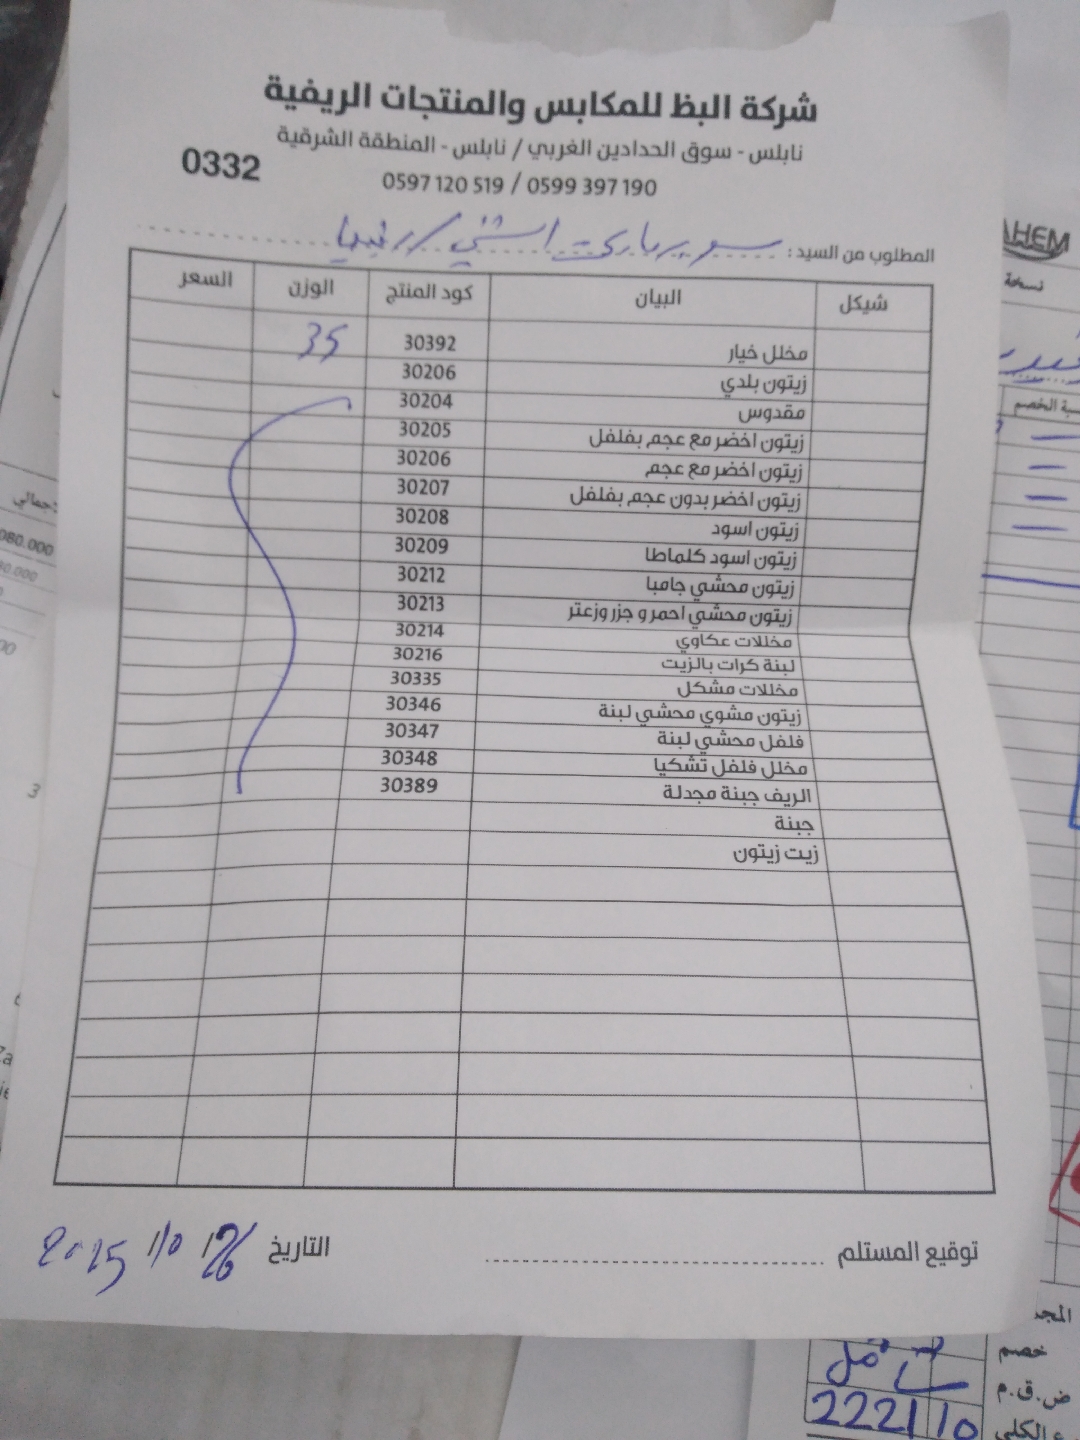 شركة البظ للمكابس والمنتجات الريفية
نابلس - سوق الحدادين الغربي / نابلس - المنطقة الشرقية
0332
0597 120 519 / 0599 397 190
المطلوب من السيد: سوبر ماركت
شيكل البيان كود المنتج الوزن السعر
مخلل خيار 30392 35
زيتون بلدي 30206
مقدوس 30204
زيتون اخضر مع عجم بفلفل 30205
زيتون اخضر مع عجم 30206
زيتون اخضر بدون عجم بفلفل 30207
زيتون اسود 30208
زيتون اسود كلماطا 30209
زيتون محشي جامبا 30212
زيتون محشي احمر و جزر وزعتر 30213
مخللات عكاوي 30214
لبنة كرات بالزيت 30216
مخللات مشكل 30335
زيتون مشوي محشي لبنة 30346
فلفل محشي لبنة 30347
مخلل فلفل تشكيا 30348
الريف جبنة مجدلة 30389
جبنة
زيت زيتون
توقيع المستلم
التاريخ 26 / 10 / 2025
AHEM
نسخة
بة الخصم
080.000
خصم
ض.ق.م
222110